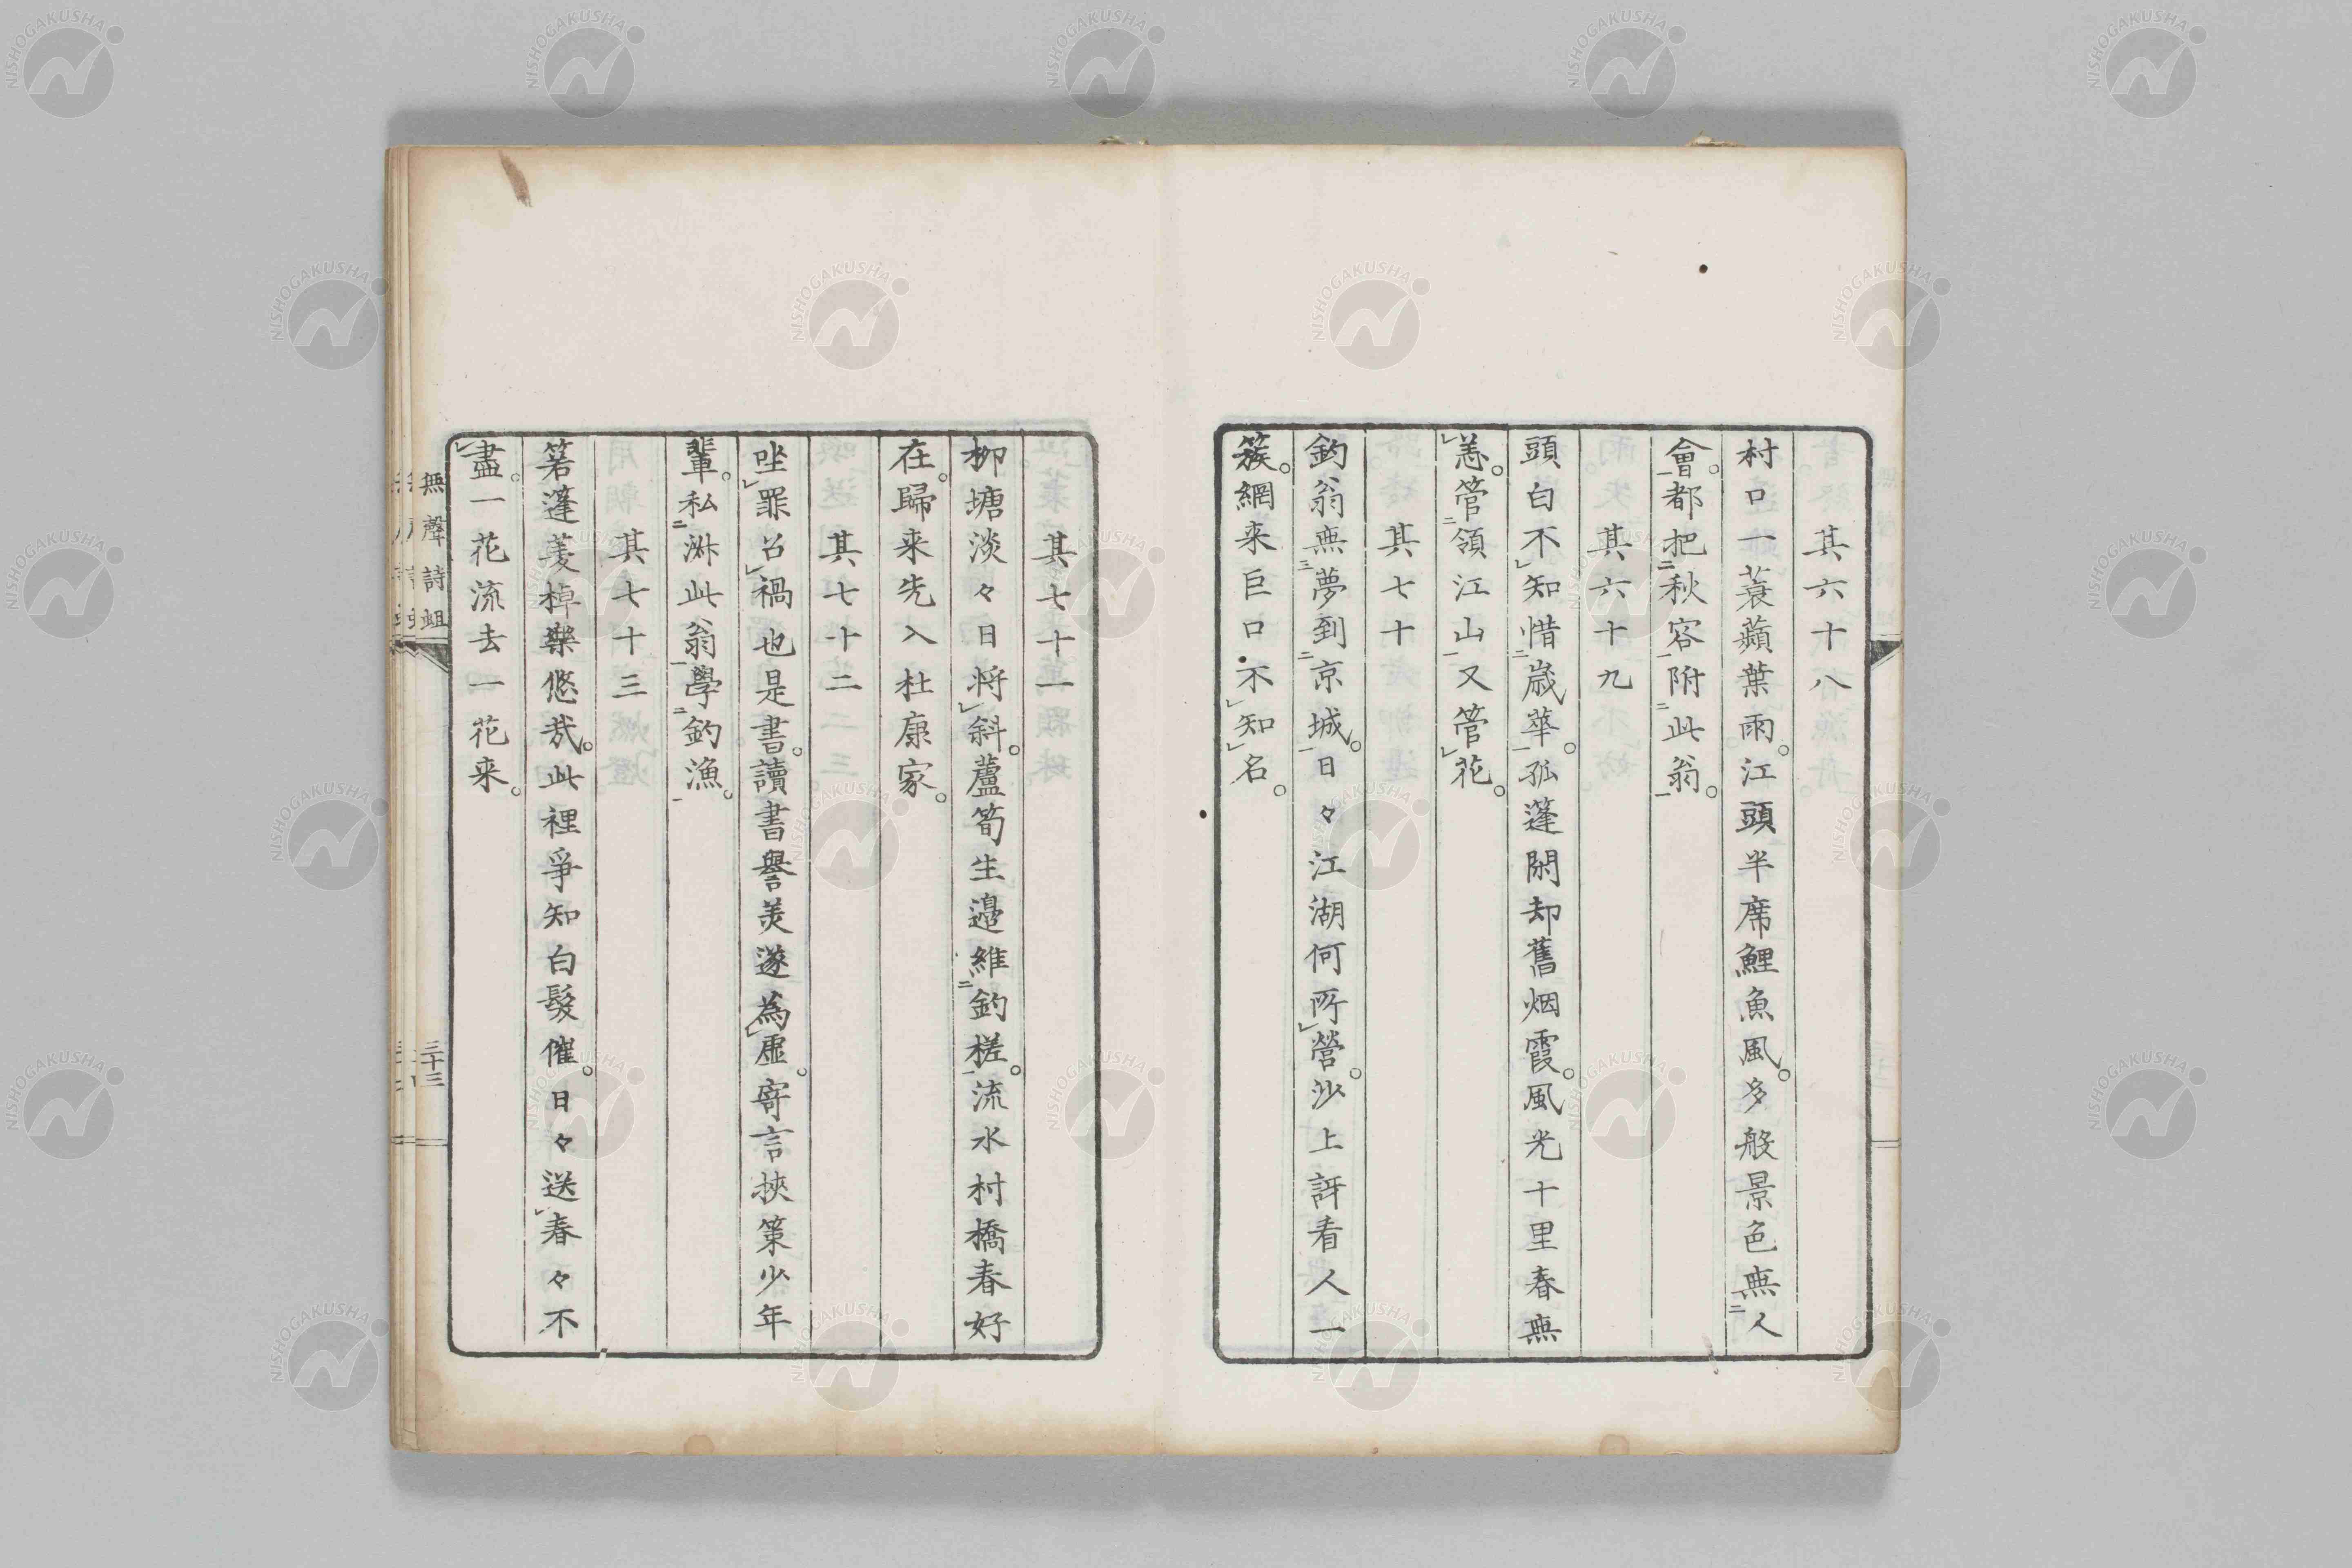 其六十八
村口一蓑蘋葉雨。江頭半席鯉魚風。多般景色無人
會。都把秋容附此翁。
其六十九
頭白不知惜歳華。孤蓬閑却舊烟霞。風光十里春無
恙。管領江山又管花。
其七十
釣翁無夢到京城。日々江湖何所營。沙上訝看人一
簇。網来巨口不知名。
其七十一
柳塘淡々日将斜。蘆筍生邉維釣槎。流水村橋春好
在。歸来先入杜康家。
其七十二
坐罪召禍也是書。讀書譽美遂為虚。寄言挾策少年
輩。私淋此翁學釣漁。
其七十三
箬蓬菱棹樂悠哉。此裡爭知白髮催。日々送春々不
盡。一花流去一花来。
無聲詩
三十三
NISHOGAKUSHA